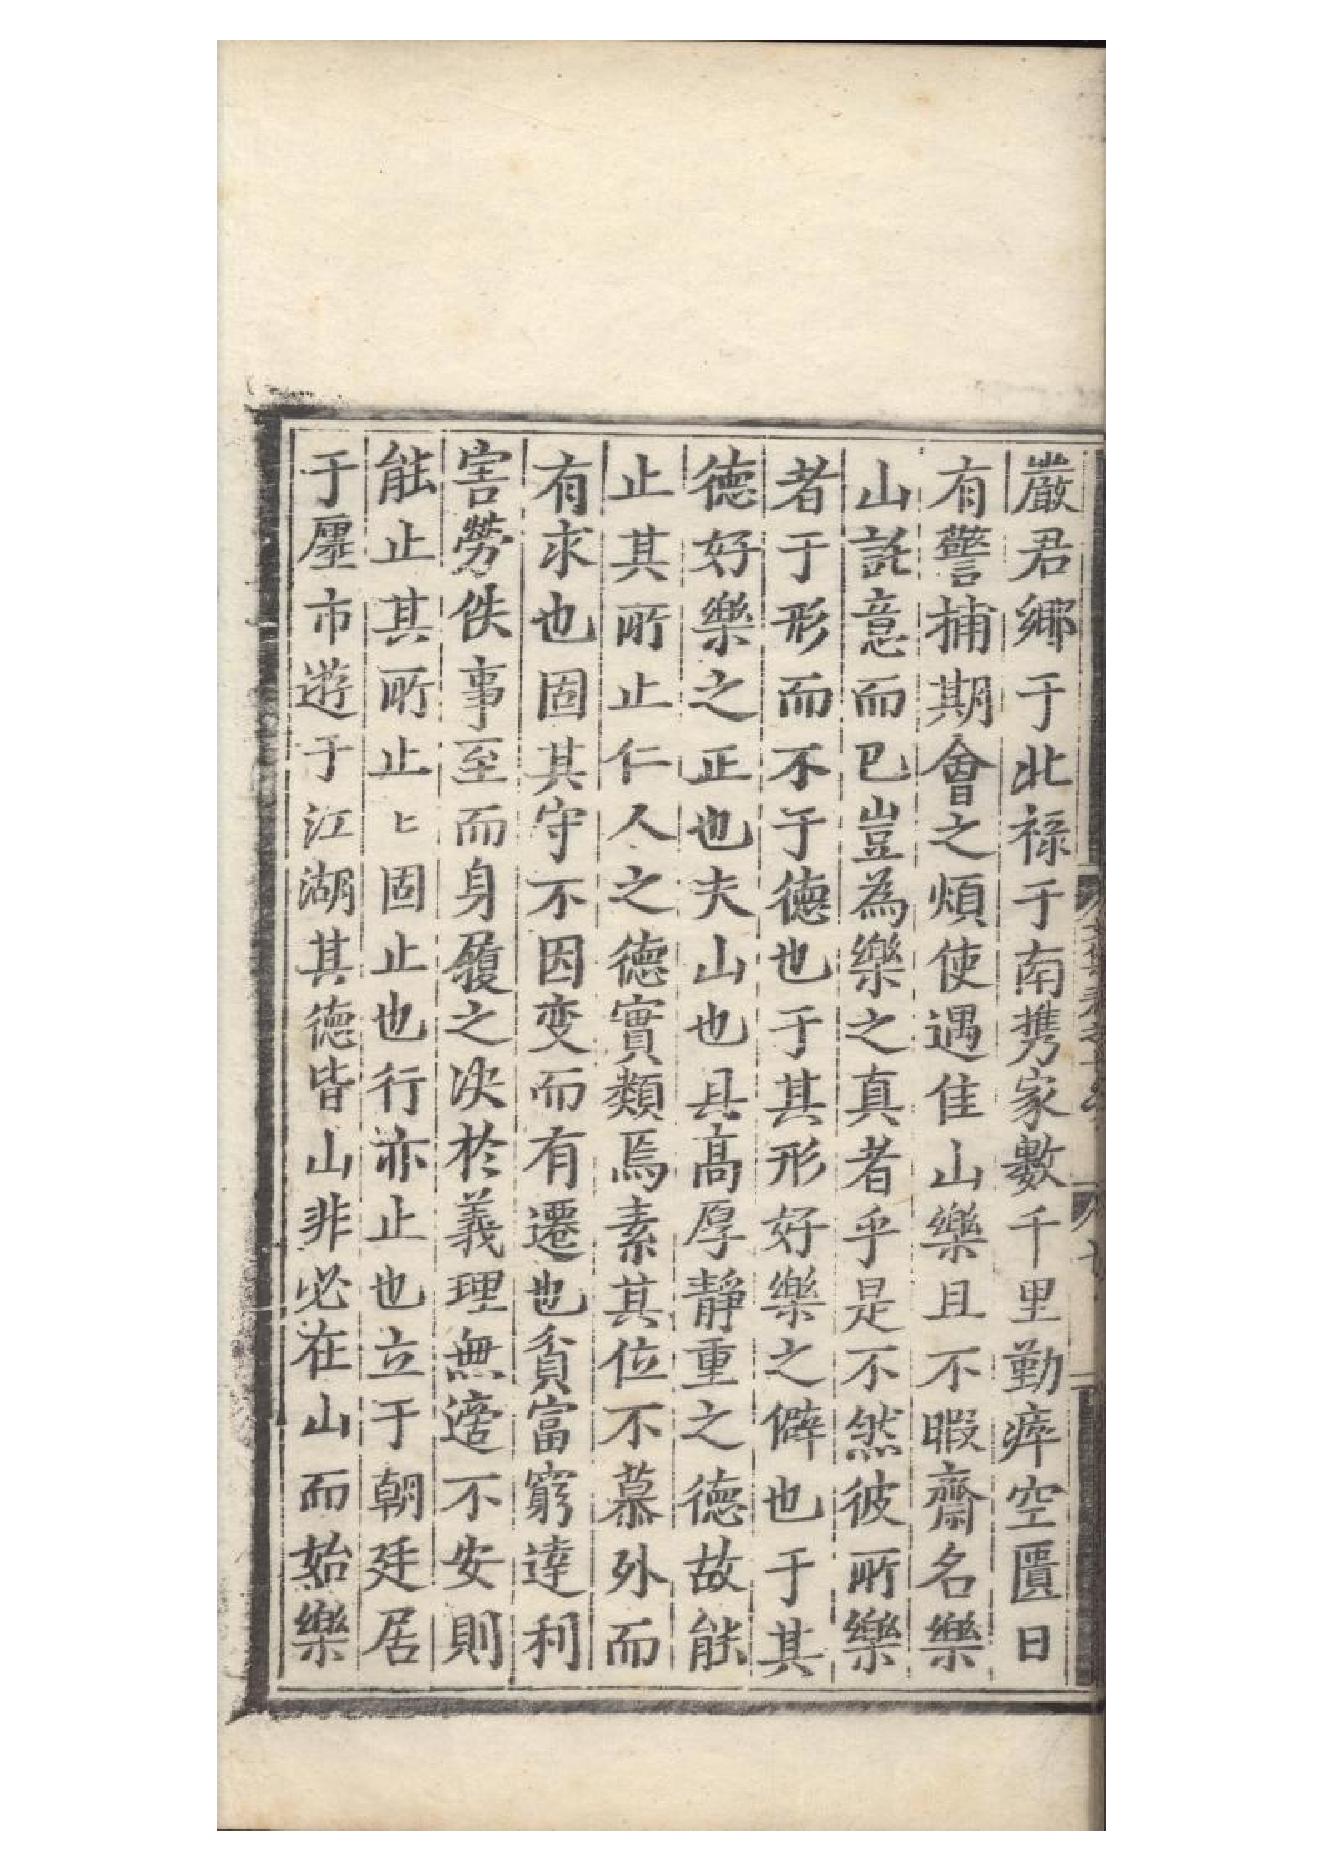 嚴君鄉于北祿于南携家數千里勤瘁空匱日
有警捕期會之煩使遇佳山樂且不暇齋名樂
山託意而已豈為樂之真者乎是不然彼所樂
者于形而不于德也于其形好樂之僻也于其
德好樂之正也夫山也具高厚靜重之德故能
止其所止仁人之德實類焉素其位不慕外而
有求也固其守不因变而有遷也貧富窮達利
害勞佚事至而身履之决於義理無適不安則
能止其所止〻固止也行亦止也立于朝廷居
于廛市遊于江湖其德皆山非必在山而始樂